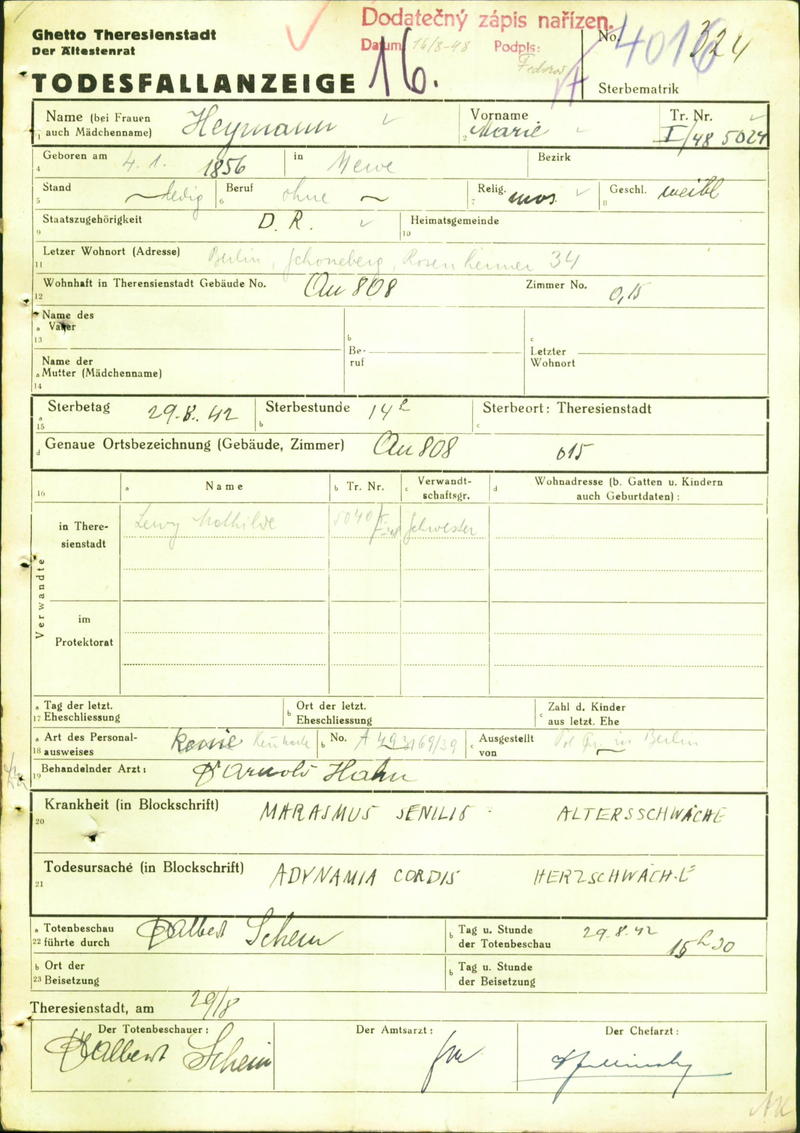 Ghetto Theresienstadt
Der Ältestenrat
Dodatečný zápis nařízen.
Datum 16/8-48 Podpis:
No. 4016 324
16.
TODESFALLANZEIGE
Sterbematrik
1 Name (bei Frauen auch Mädchenname) Heymann
2 Vorname Marie
Tr. Nr. I/48 5024
4 Geboren am 4. 1. 1856 in Mewe Bezirk
5 Stand ledig 6 Beruf ohne 7 Relig. mos 8 Geschl. weibl
9 Staatszugehörigkeit D. R. 10 Heimatsgemeinde
11 Letzer Wohnort (Adresse) Berlin, Schöneberg, Rosenheimer 34
12 Wohnhaft in Therensienstadt Gebäude No. 808 Zimmer No. 0,15
13 a Name des Vater
b Be-ruf
c Letzter Wohnort
14 a Name der Mutter (Mädchenname)
15 a Sterbetag 29. 8. 42 b Sterbestunde 14 h c Sterbeort: Theresienstadt
d Genaue Ortsbezeichnung (Gebäude, Zimmer) 808 015
16 a Name b Tr. Nr. c Verwandt-schaftsgr. d Wohnadresse (b. Gatten u. Kindern auch Geburtdaten):
Verwandte
in There-sienstadt Lewy Mathilde 5040 Schwester
im Protektorat
17 a Tag der letzt. Eheschliessung b Ort der letzt. Eheschliessung c Zahl d. Kinder aus letzt. Ehe
18 a Art des Personal-ausweises Kennkarte b No. A 493169/39 c Ausgestellt von Pol in Berlin
19 Behandelnder Arzt: Dr Arnold Hahn
20 Krankheit (in Blockschrift) MARASMUS SENILIS - ALTERSSCHWÄCHE
21 Todesursache (in Blockschrift) ADYNAMIA CORDIS HERZSCHWÄCHE
22 a Totenbeschau führte durch Dr Albert Schein b Tag u. Stunde der Totenbeschau 29. 8. 42 15 h 30
23 b Ort der Beisetzung b Tag u. Stunde der Beisetzung
Theresienstadt, am 29/8
Der Totenbeschauer: Der Amtsarzt: Der Chefarzt:
Dr Albert Schein